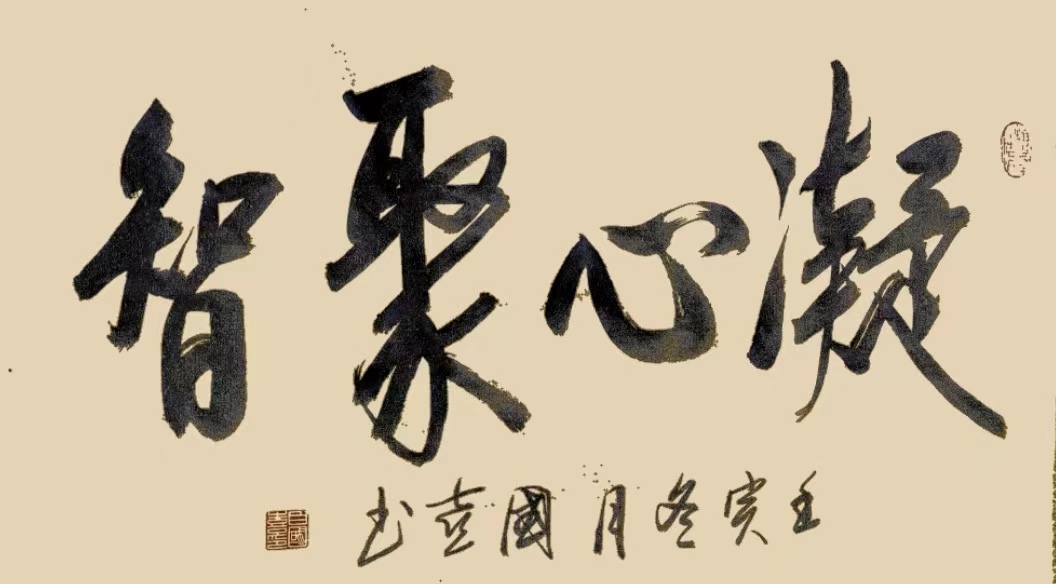 凝心聚智
壬寅冬月國喜书